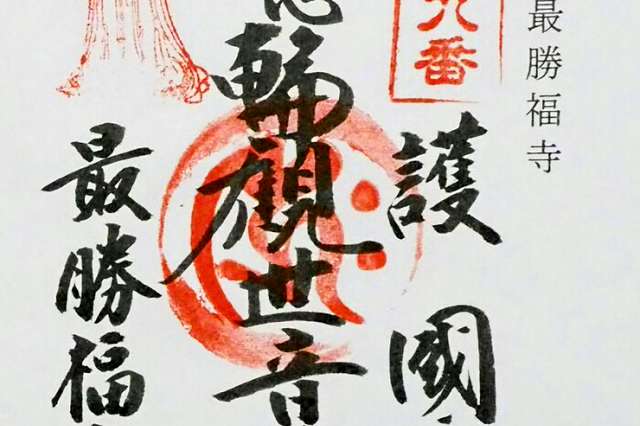 最勝福寺
八番
護國
輪觀世音
最勝福